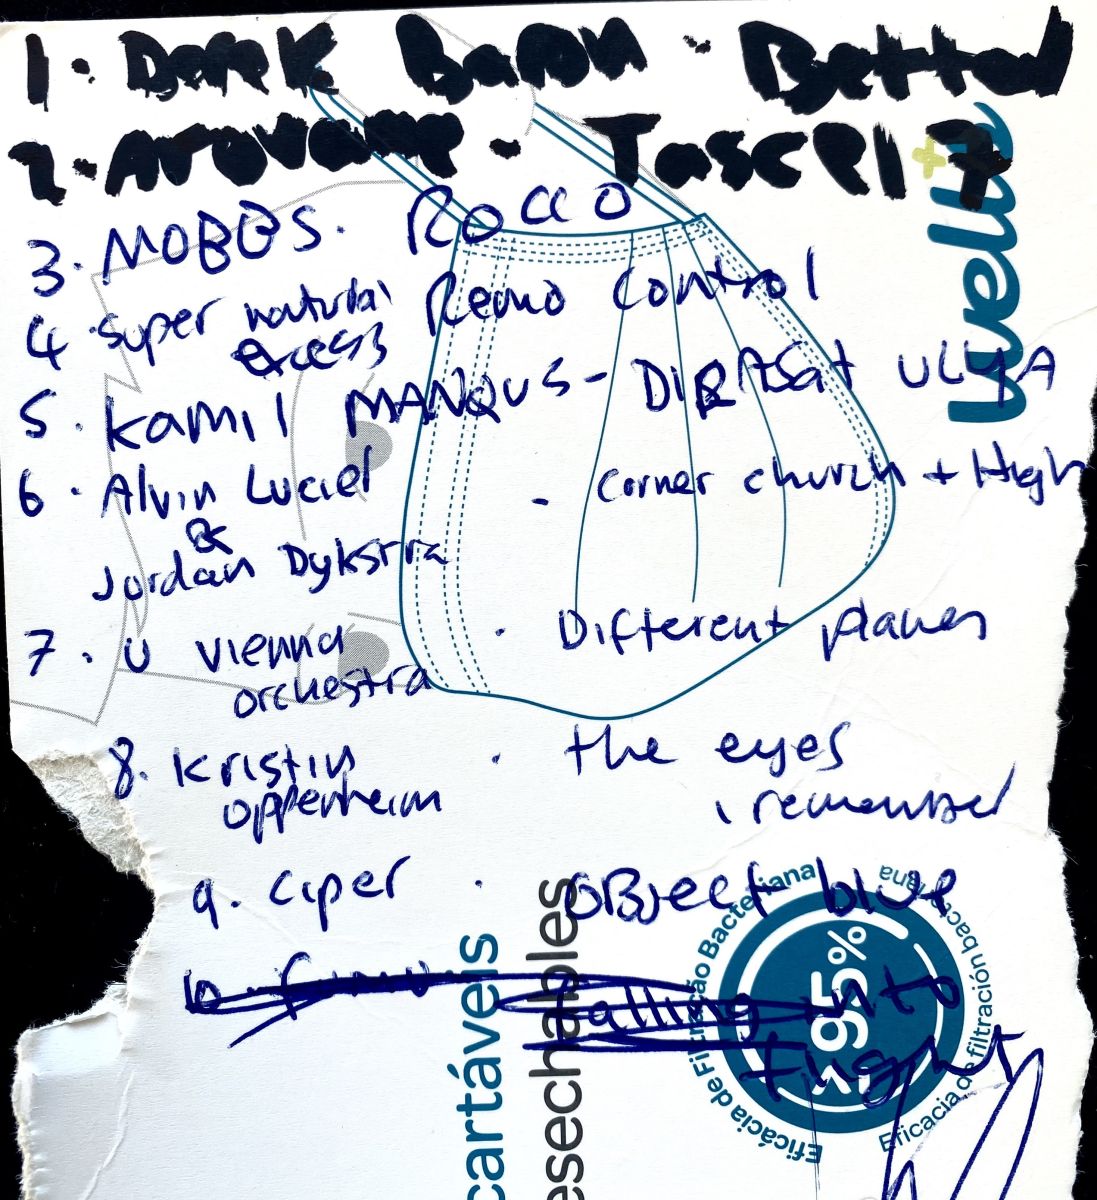 1. Derek Baron - Bettd
2. Arovane - Tascel
3. MOBBS. ROCCO
4. Super natural Remo Control
excess
5. Kamil MANQUS - DIRASat ULYA
6. Alvin Luciel - Corner church + High
&
Jordan Dykstra
7. U vienna . Different planes
orchestra
8. Kristin . the eyes
oppenheim i remember
9. Ciper . OBJect blue
10. fumu falling into
Fught
wells
cartáveis
esechables
≥95%
Eficácia de Filtração Bacteriana
Eficacia de filtración bacteriana